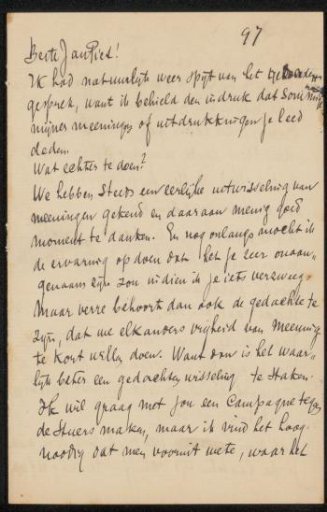 97
Beste Jan Piet!
Ik had natuurlijk weer spijt van het
gesprek, want ik behield den indruk dat sommige
mijner meeningen of uitdrukkingen je leed
deden.
Wat echter te doen?
We hebben steeds een eerlijke uitwisseling van
meeningen gekend en daaraan menig goed
moment te danken. En nog onlangs mocht ik
de ervaring op doen dat het je zeer onaan-
genaam zijn zou indien ik je iets verzweeg.
Maar verre behoort dan ook de gedachte te
zijn, dat we elkanders vrijheid van meening
te kort willen doen. Want dan is het waar-
lijk beter een gedachtenwisseling te staken.
Ik wil graag met jou een Campagne tegen
de Stuers maken, maar ik vind het hoog-
noodig dat men vooruit wete, waar het